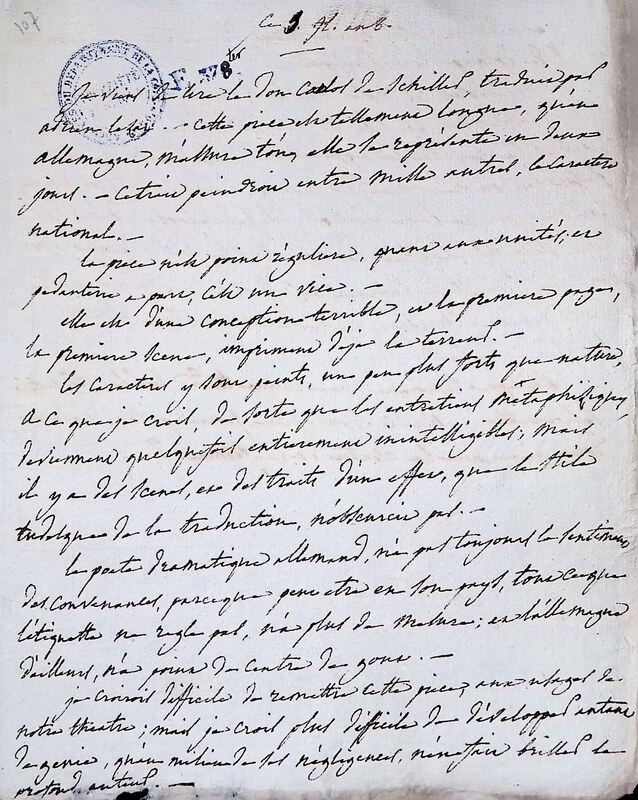 107
Ce 3. fl. an 8.
F 378 ter
je viens de lire le Don Carlos de Schiller, traduit par
adrien lezai. – cette piece est tellement longue, qu'en
allemagne, m'assure t'on, elle se représente en deux
jours. – ce trait peindroit entre mille autres, le caractere
national. –
la piece n'est point réguliere, quant aux unités, et
pedanterie a part, c'est un vice. –
elle est d'une conception terrible, et la premiere page,
la premiere scene, impriment déja la terreur. –
les caracteres y sont peints, un peu plus forts que nature,
a ce que je crois, de sorte que les entretiens métaphisiques
deviennent quelquefois entierement inintelligibles; mais
il y a des scenes, et des traits d'un effet, que le stile
tudesque de la traduction, n'obscurcit pas. –
le poete dramatique allemand, n'a pas toujours le sentiment
des convenances, parceque peut etre en son pays, tout ce que
l'étiquette ne regle pas, n'a plus de mesure; et l'allemagne
d'ailleurs, n'a point de centre de gout. –
je croirois difficile de remettre cette piece, aux usages de
notre theatre; mais je crois plus difficile de développer autant
de genie, qu'au milieu de ses négligences, n'en fait briller le
profond auteur. –